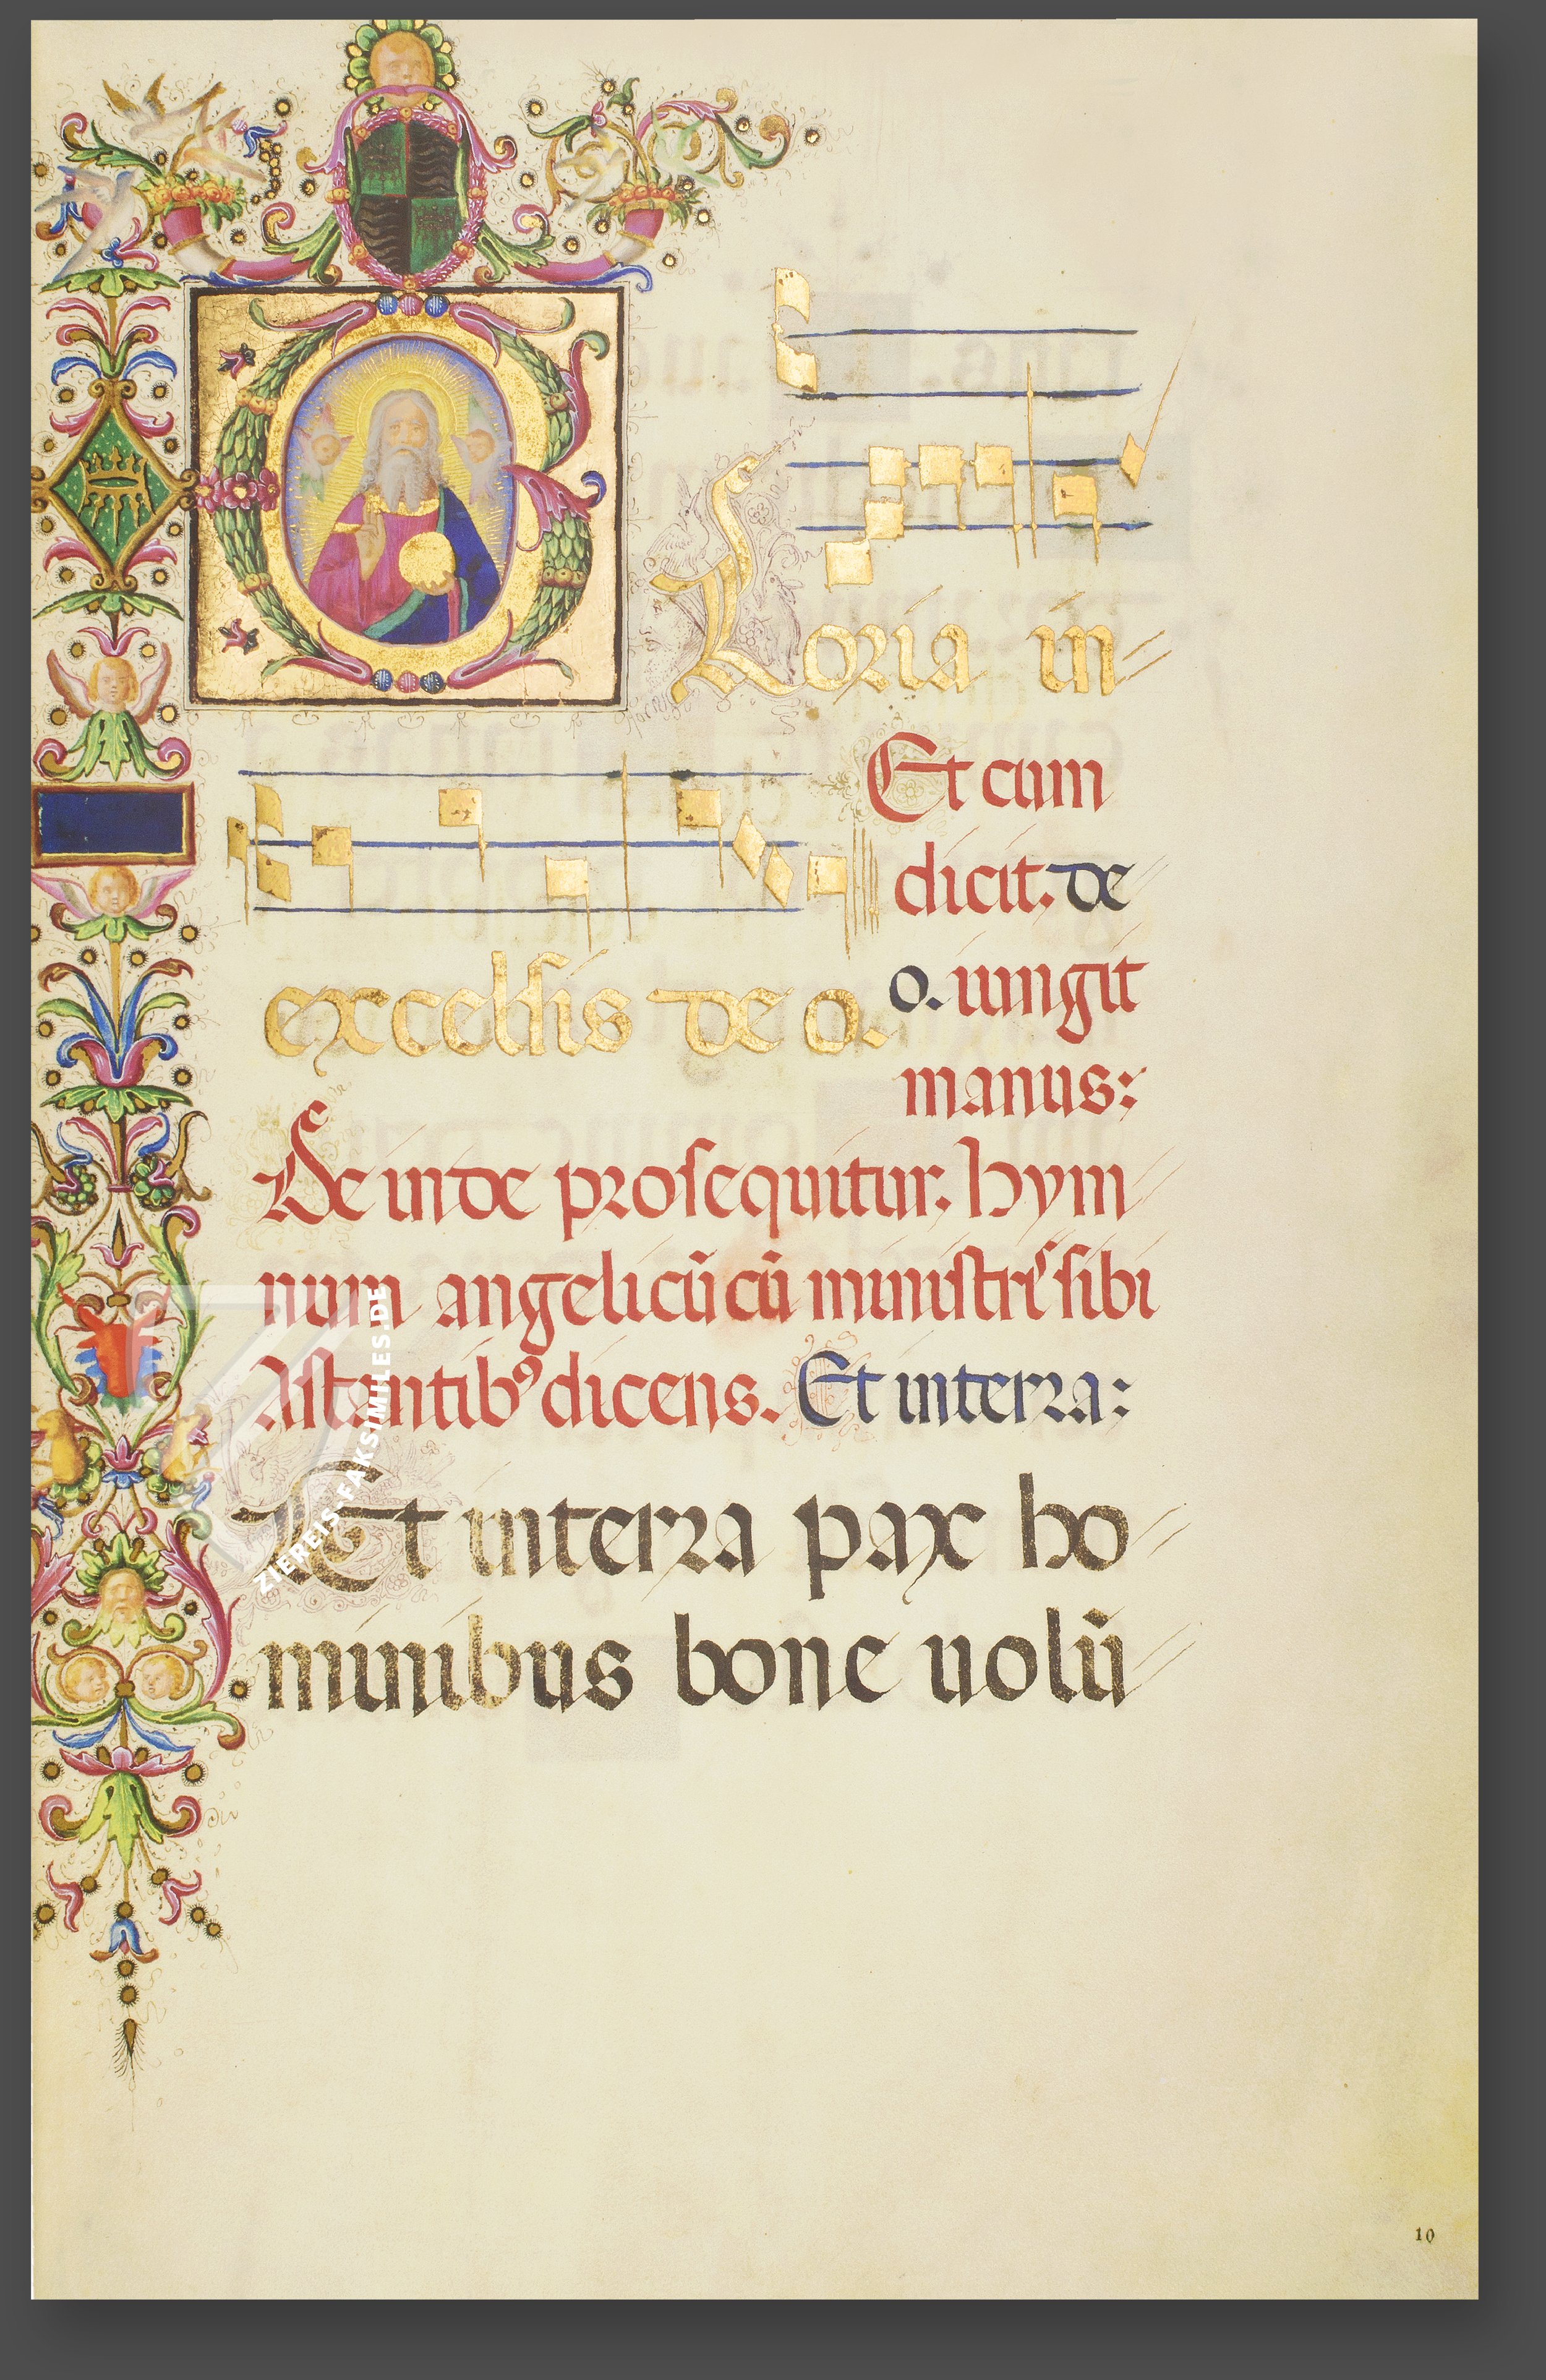 Gloria in
Et cum
dicit. de
excelsis deo.
o. iungit
manus:
Deinde prosequitur. hym
num angelicũ cũ ministris sibi
Astantibꝰ dicens. Et in terra:
Et in terra pax ho
minibus bone uolũ
10
ZIEREIS-FAKSIMILES.DE